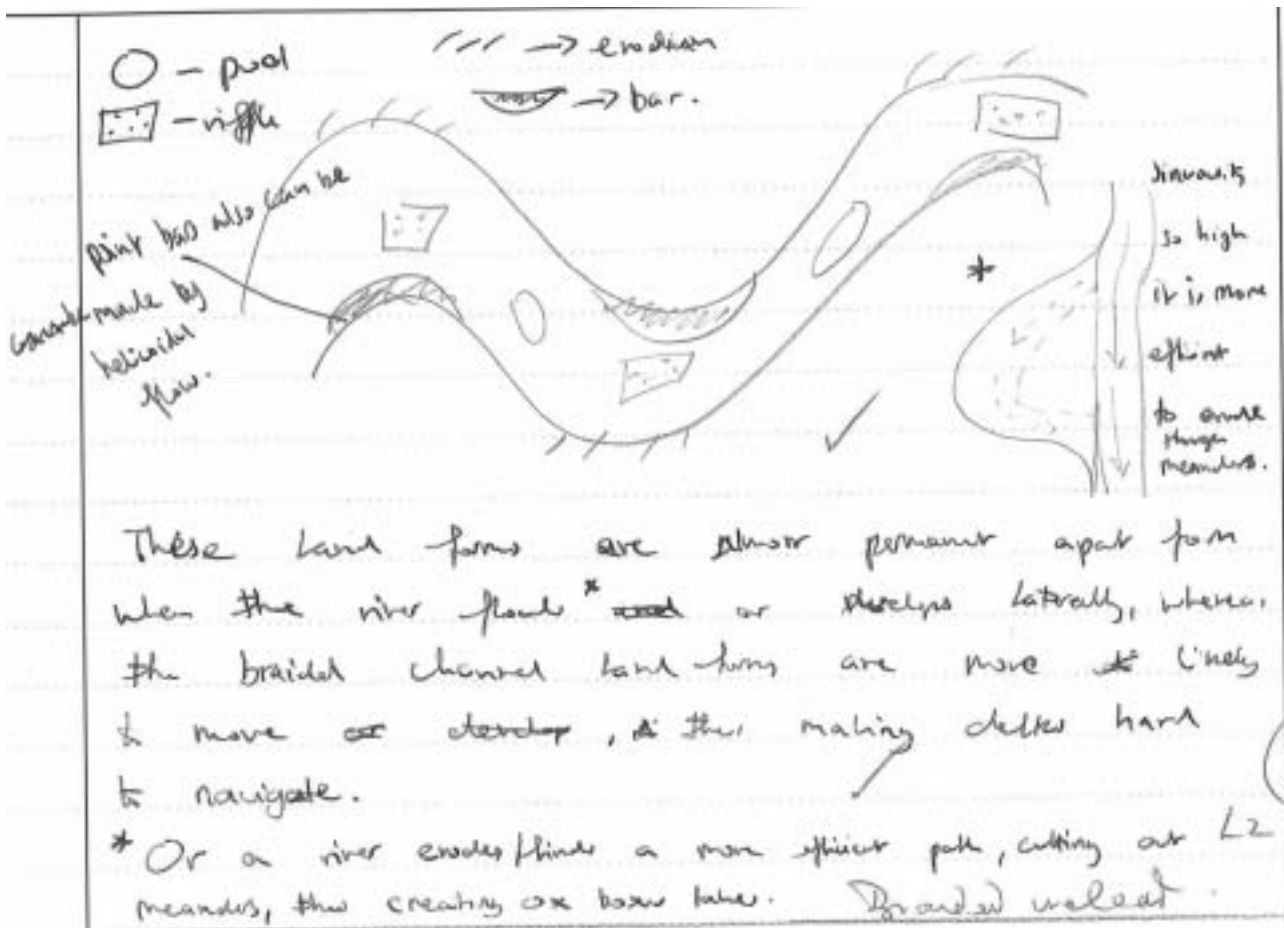 - pool
- riffle
/// → erosion
→ bar.
point bar also can be
made by
helicoidal
flow.
*
sinuosity
so high
it is more
effiint
to erode
through
meanders.
These land forms are almost permanent apart form
when the river floods* or develops laterally, whereas
the braided channel land forms are more likely
to move or develop, thus making deltas hard
to navigate.
* Or a river erodes/finds a more efficient path, cutting out
meanders, thus creating oxe bow lakes.
L2